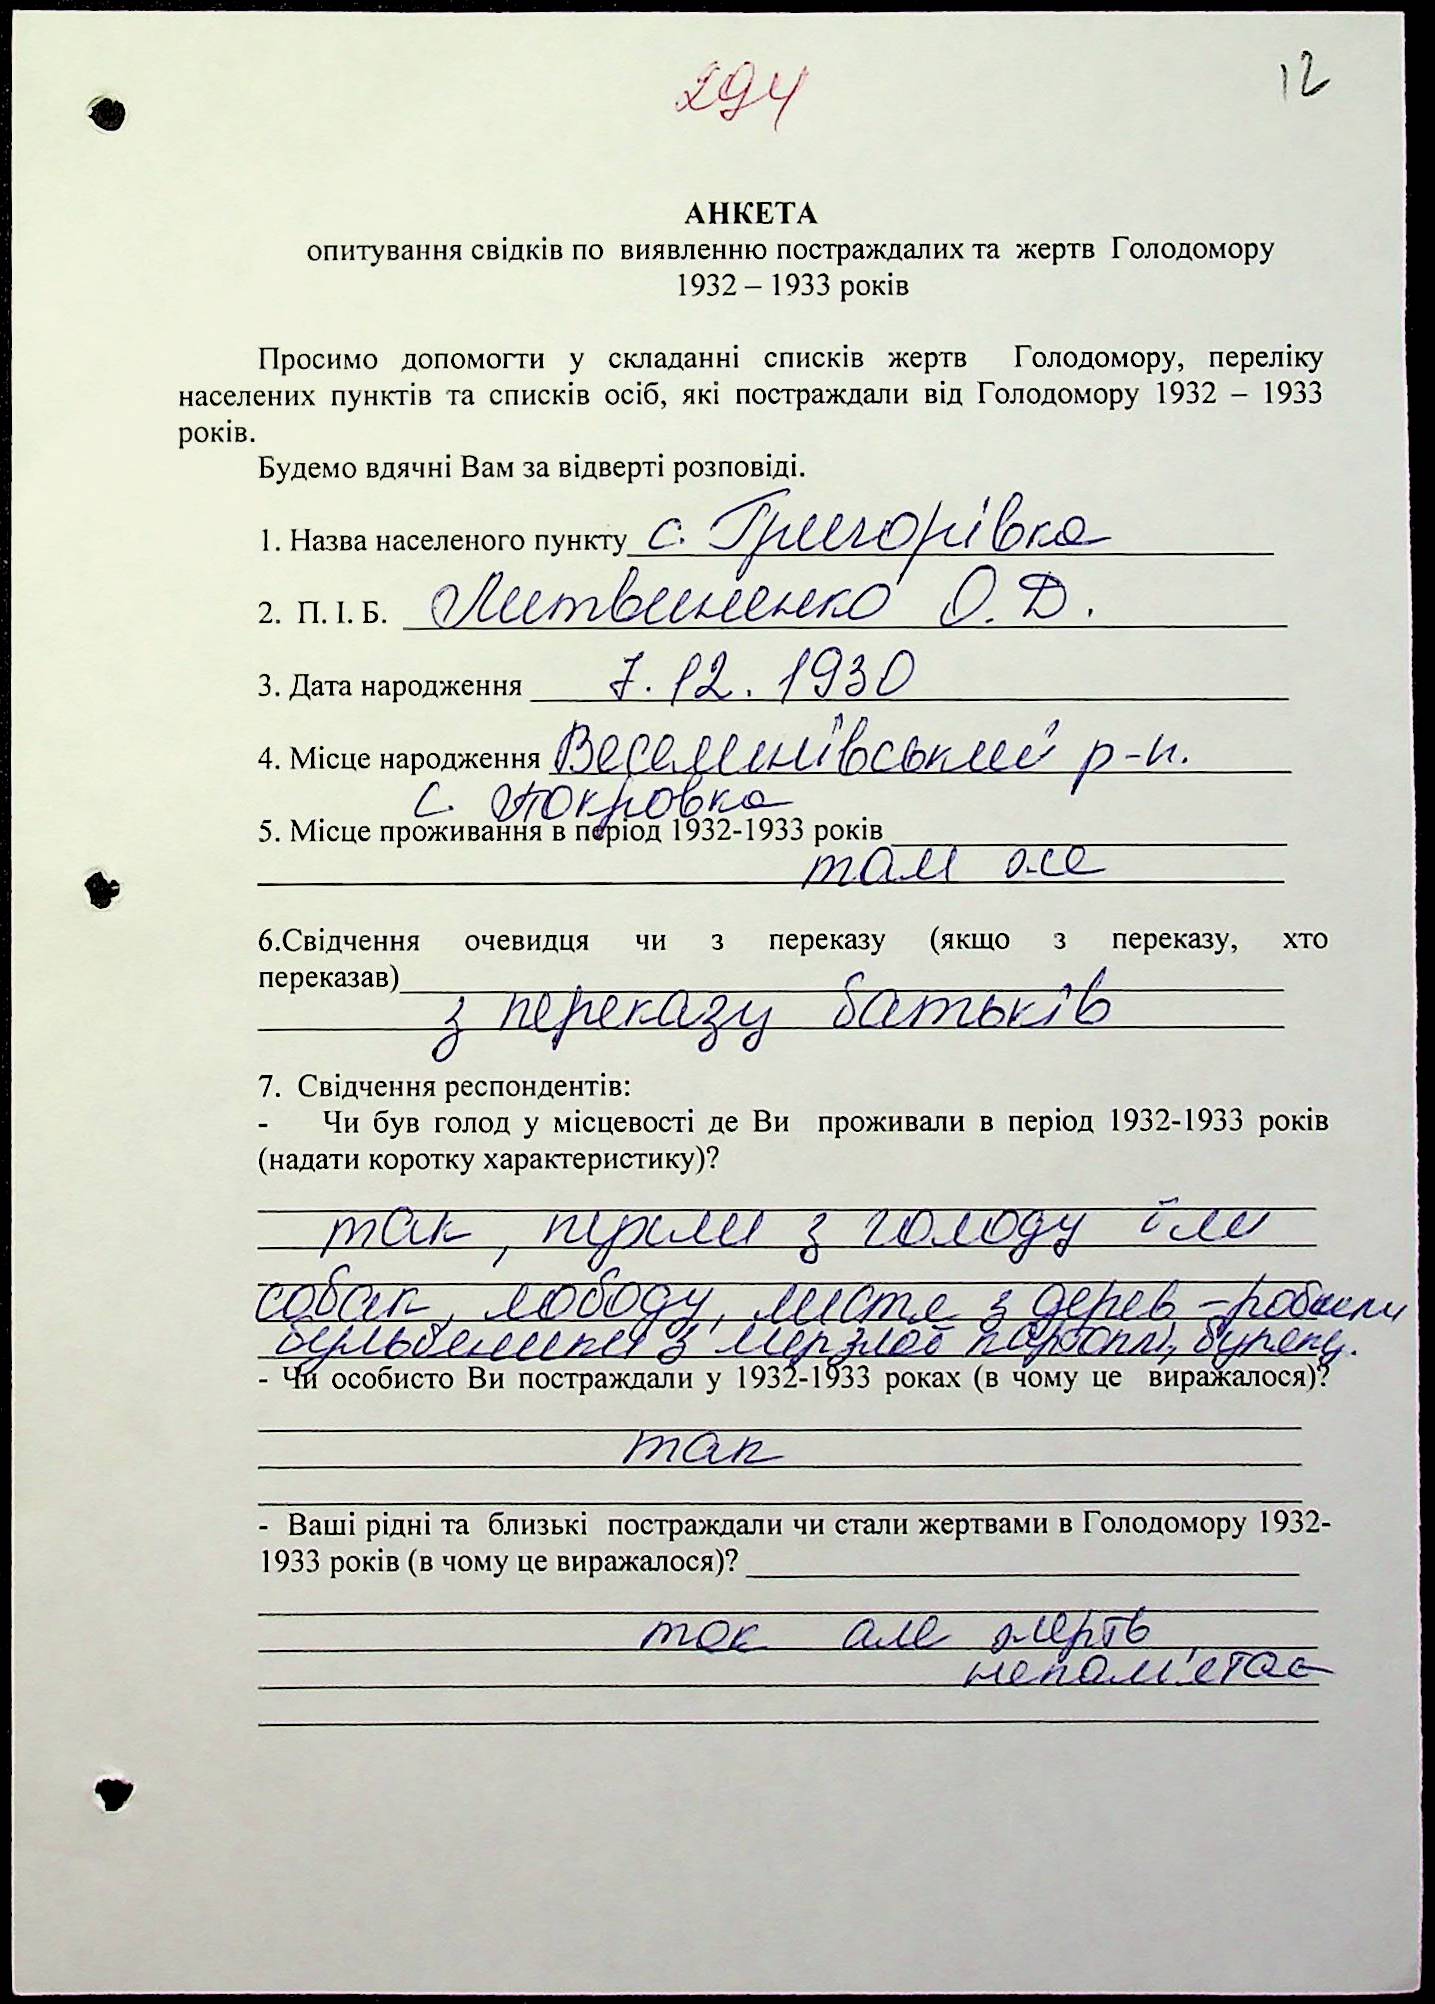 294
12
АНКЕТА
опитування свідків по виявленню постраждалих та жертв Голодомору
1932 – 1933 років
Просимо допомогти у складанні списків жертв Голодомору, переліку
населених пунктів та списків осіб, які постраждали від Голодомору 1932 – 1933
років.
Будемо вдячні Вам за відверті розповіді.
1. Назва населеного пункту с. Григорівка
2. П. І. Б. Литвиненко О. Д.
3. Дата народження 7. 12. 1930
4. Місце народження Веселинівський р-н.
с. Покровка
5. Місце проживання в період 1932-1933 років
там же
6.Свідчення очевидця чи з переказу (якщо з переказу, хто
переказав)
з переказу батьків
7. Свідчення респондентів:
- Чи був голод у місцевості де Ви проживали в період 1932-1933 років
(надати коротку характеристику)?
так, пухли з голоду їли
собак, лободу, листя з дерев – робили
з мерзлої картоплі, буряку.
- Чи особисто Ви постраждали у 1932-1933 роках (в чому це виражалося)?
так
- Ваші рідні та близькі постраждали чи стали жертвами в Голодомору 1932-
1933 років (в чому це виражалося)?
так але жертв
непам'ятає